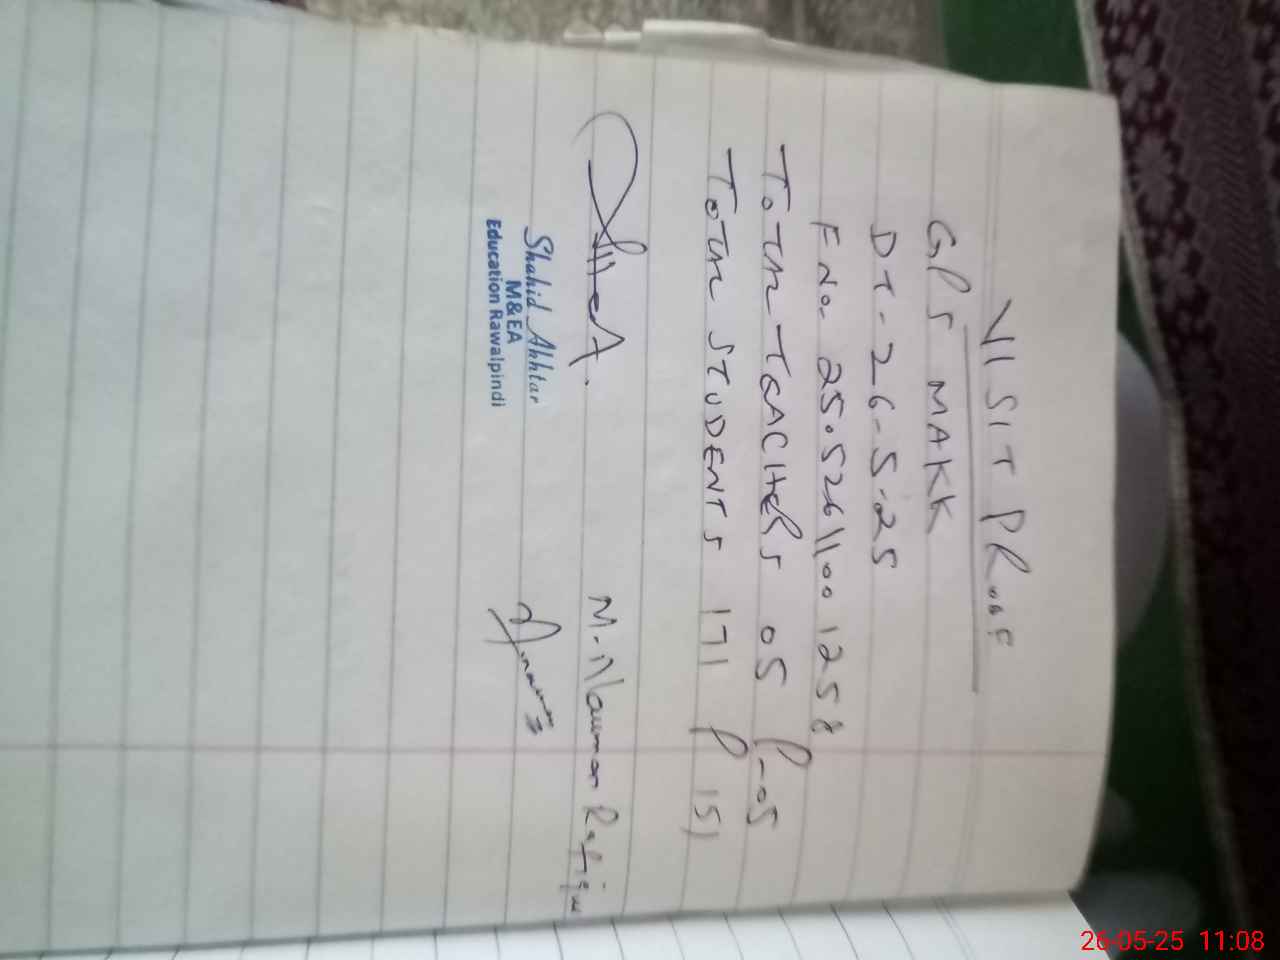 VISIT PROOF
GPS MAKK
DT - 26-5-25
F No. 25052611001258
TOTAL TEACHERS 05 P-05
TOTAL STUDENTS 171 P 151
M. Nauman Rafique
Shahid Akhtar
M&EA
Education Rawalpindi
26-05-25 11:08